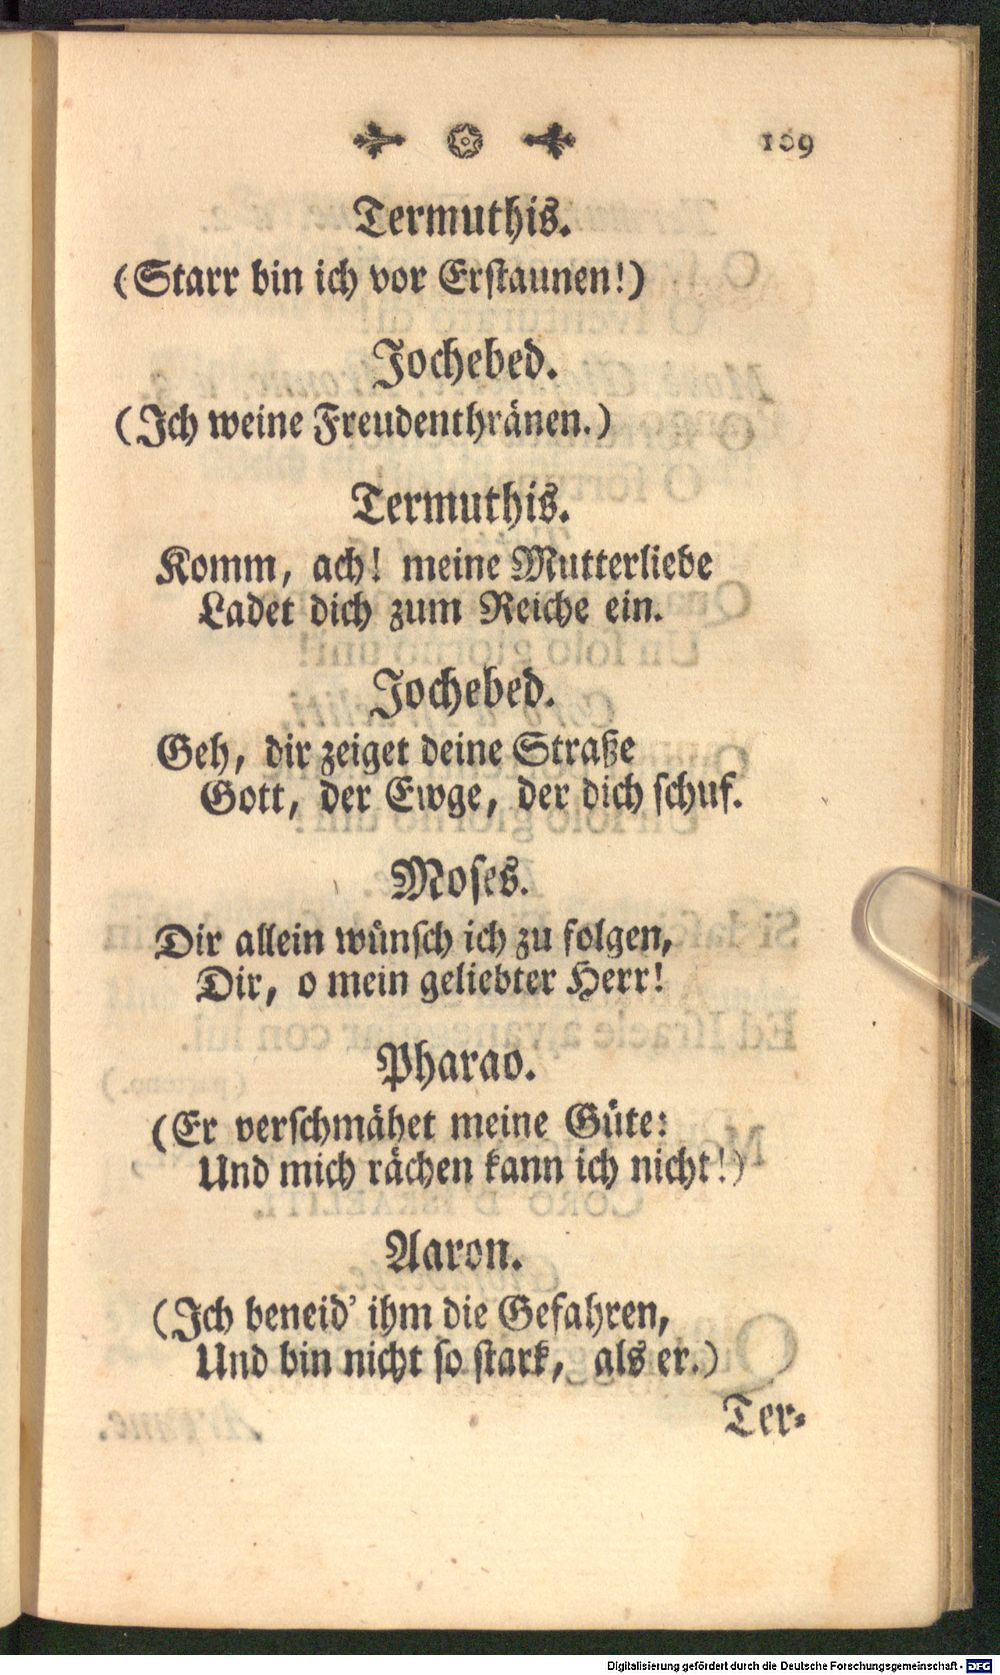 109
Termuthis.
(Starr bin ich vor Erstaunen!)
Jochebed.
(Ich weine Freudenthränen.)
Termuthis.
Komm, ach! meine Mutterliebe
Ladet dich zum Reiche ein.
Jochebed.
Geh, dir zeiget deine Straße
Gott, der Ewge, der dich schuf.
Moses.
Dir allein wünsch ich zu folgen,
Dir, o mein geliebter Herr!
Pharao.
(Er verschmähet meine Güte:
Und mich rächen kann ich nicht!)
Aaron.
(Ich beneid' ihm die Gefahren,
Und bin nicht so stark, als er.)
Ter-
Digitalisierung gefördert durch die Deutsche Forschungsgemeinschaft - DFG